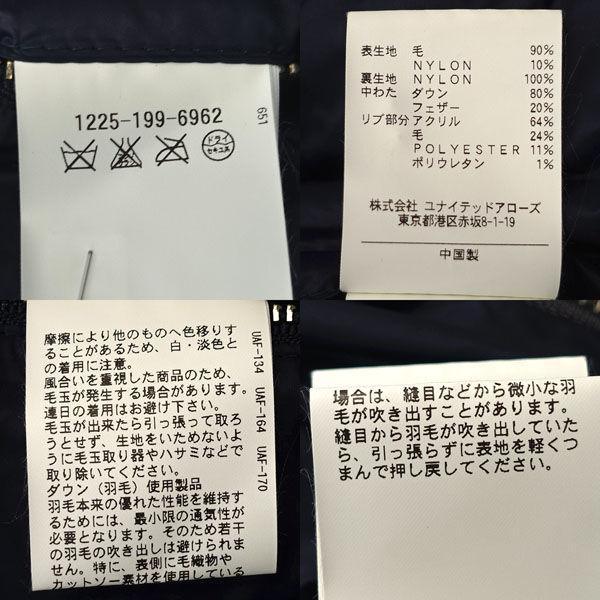 1225-199-6962
651
ドライ
セキユ系
表生地 毛 90%
NYLON 10%
裏生地 NYLON 100%
中わた ダウン 80%
フェザー 20%
リブ部分 アクリル 64%
毛 24%
POLYESTER 11%
ポリウレタン 1%
株式会社 ユナイテッドアローズ
東京都港区赤坂8-1-19
中国製
摩擦により他のものへ色移りす
ることがあるため、白・淡色と
の着用に注意。
風合いを重視した商品のため、
毛玉が発生する場合があります。
連日の着用はお避け下さい。
毛玉が出来たら引っ張って取ろ
うとせず、生地をいためないよ
うに毛玉取り器やハサミなどで
取り除いてください。
ダウン（羽毛）使用製品
羽毛本来の優れた性能を維持す
るためには、最小限の通気性が
必要となります。そのため若干
の羽毛の吹き出しは避けられま
せん。特に、表側に毛織物や
カットソー素材を使用している
UAF-134 UAF-164 UAF-170
場合は、縫目などから微小な羽
毛が吹き出すことがあります。
縫目から羽毛が吹き出していた
ら、引っ張らずに表地を軽くつ
まんで押し戻してください。